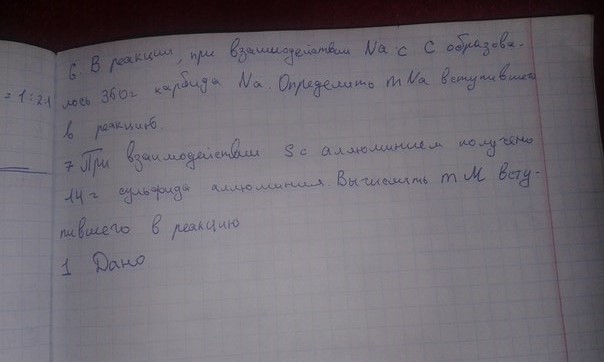 = 1 : 2:1
6. В реакции, при взаимодействии Na с C образова-
лось 360г карбида Na. Определить m Na вступившего
в реакцию.
7 При взаимодействии S с аллюминием получено
14 г сульфида аллюминия. Вычислить m M всту-
пившего в реакцию
1 Дано